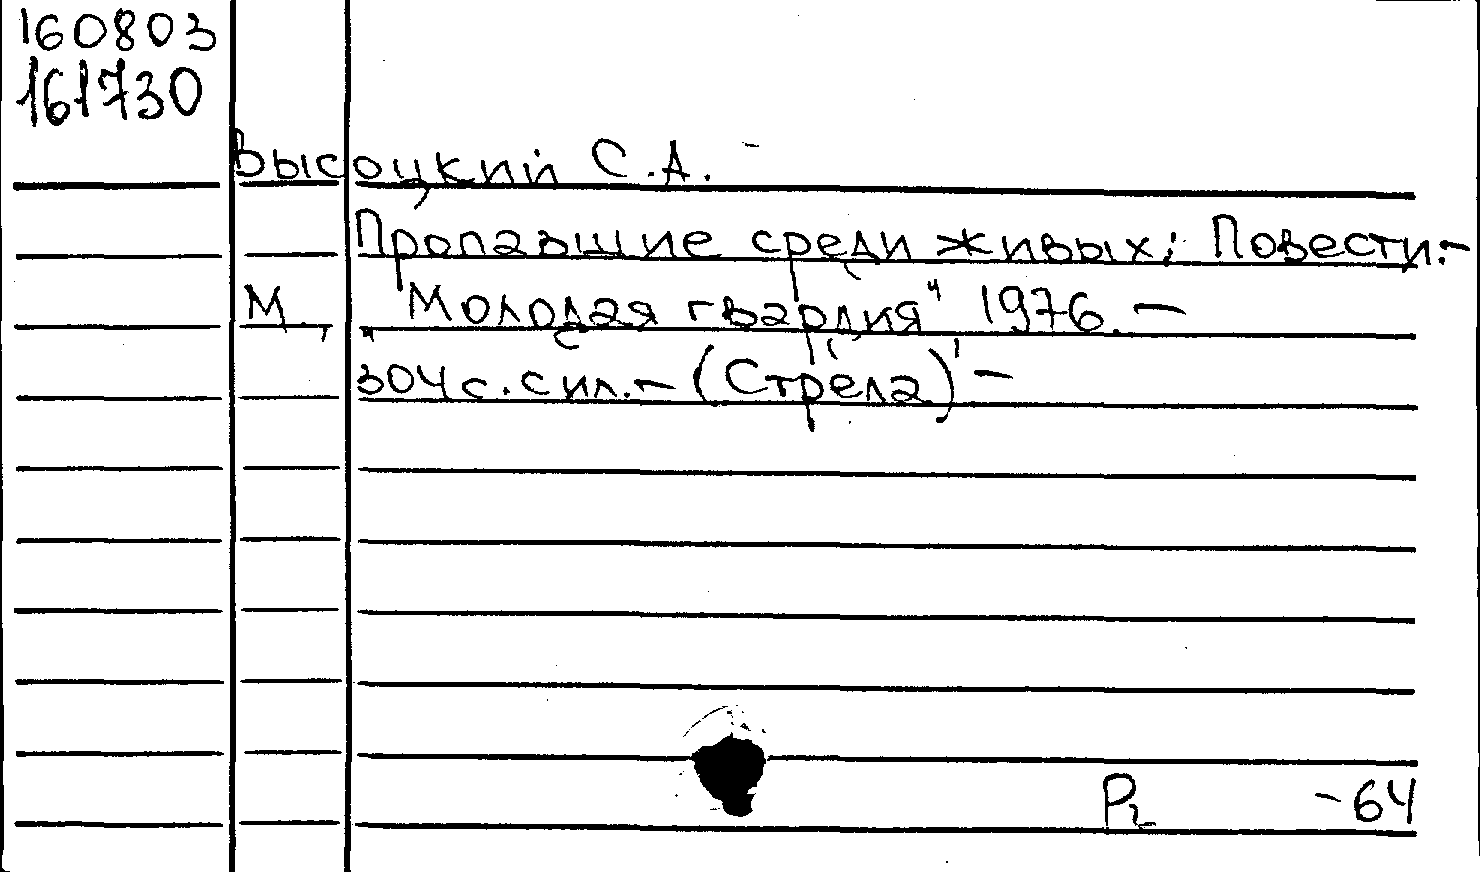 160803
161730
Высоцкий С.А. -
Пропавшие среди живых: Повести.-
М., "Молодая гвардия" 1976.-
304 с. с ил.- (Стрела)-
Р2 -64